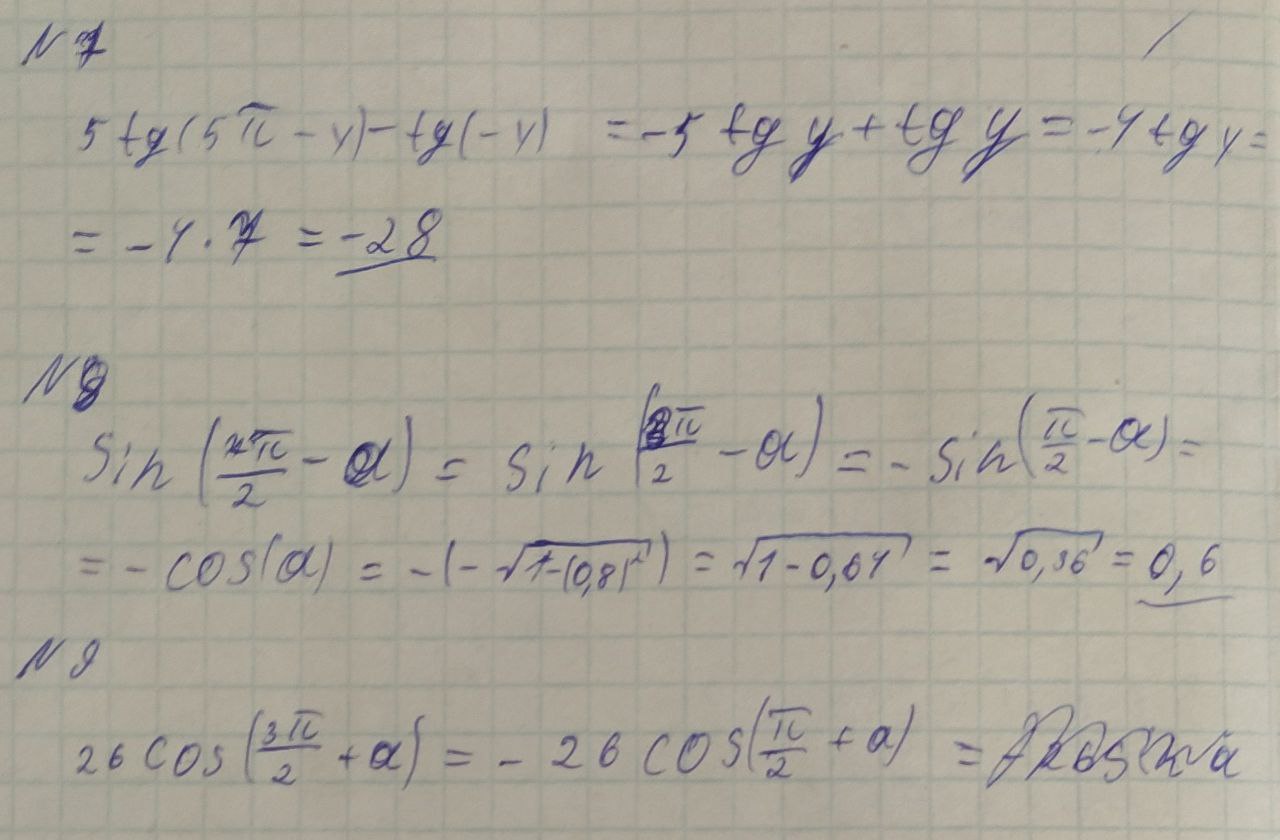 N 7
5 tg(5π - y) - tg(-y) = -5 tg y + tg y = -4 tg y =
= -4 · 7 = -28
N 8
Sin (π/2 - α) = Sin (3π/2 - α) = - Sin (π/2 - α) =
= - cos(α) = -(-√1-(0,8)²) = √1 - 0,64 = √0,36 = 0,6
N 9
26 cos (3π/2 + α) = - 26 cos (π/2 + α) =